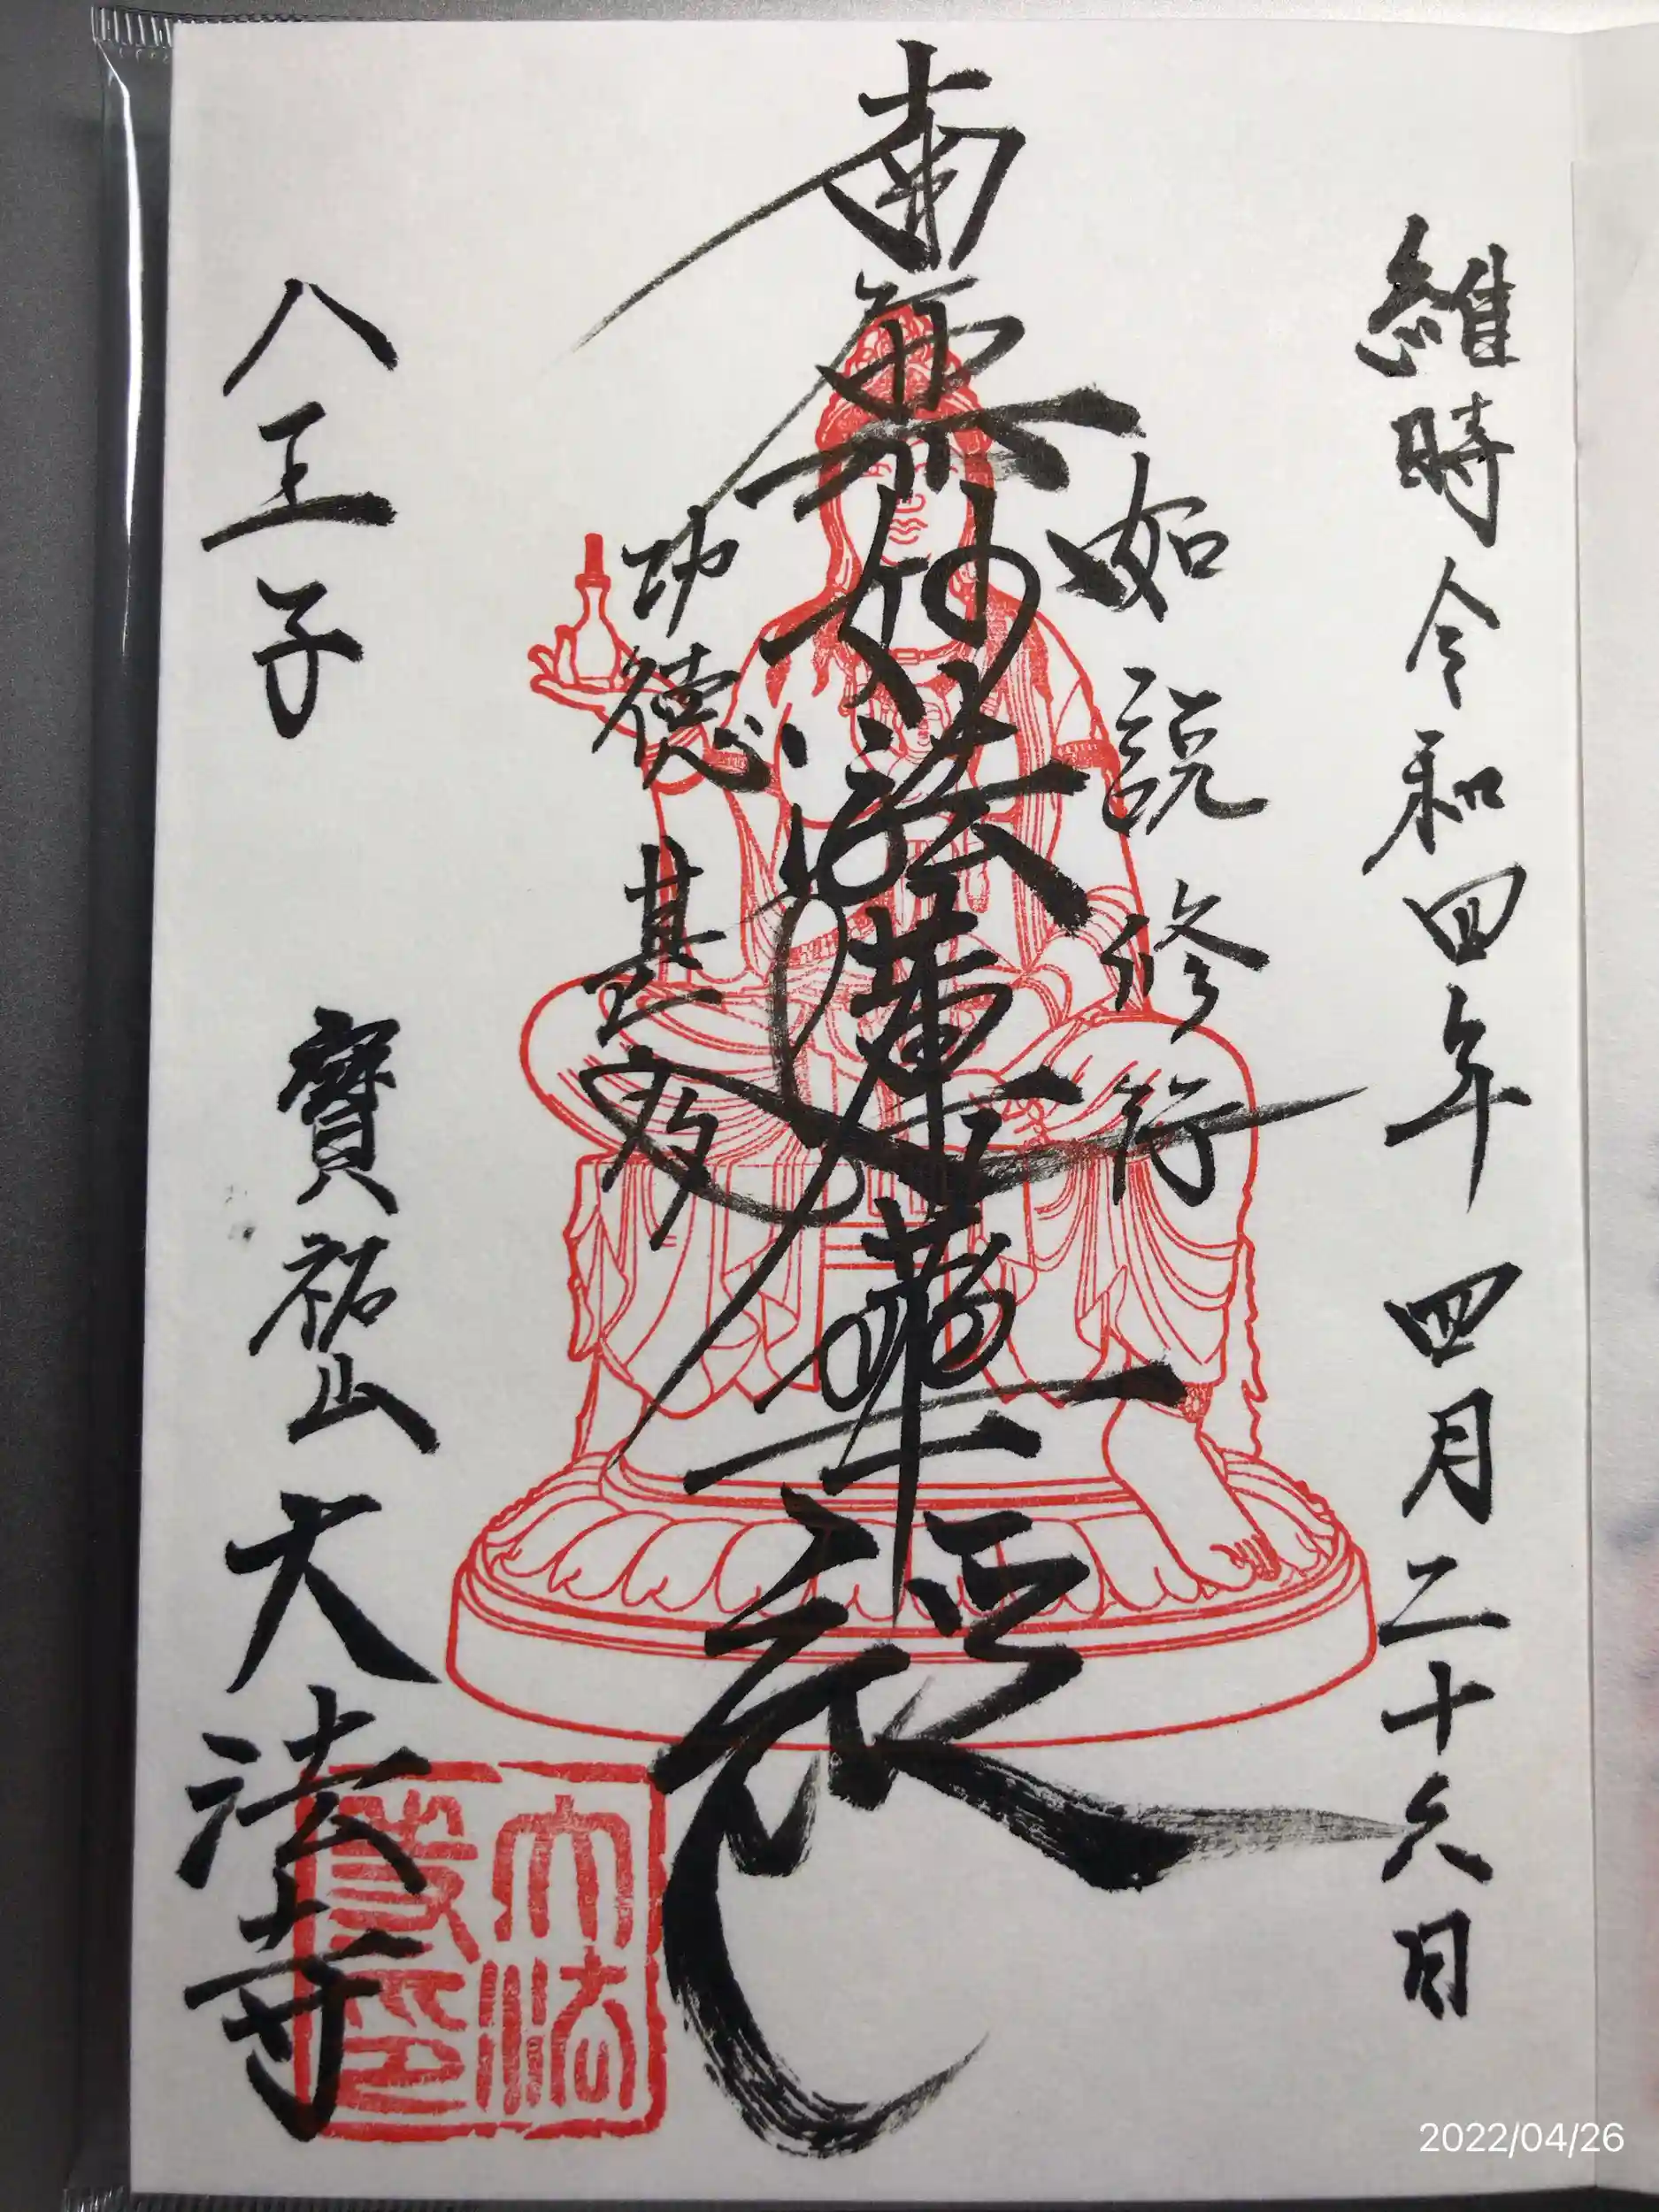 維時令和四年 四月二十六日
如説修行
南無妙法蓮華経
功徳甚多
八王子 寶祐山 大法寺
大法
2022/04/26